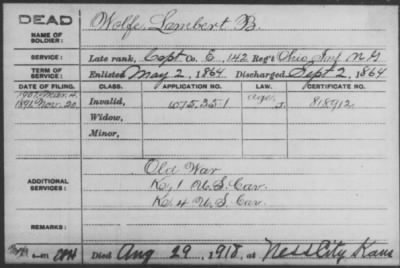 DEAD
NAME OF SOLDIER:
Wolfe, Lambert B.
SERVICE:
Late rank, Capt Co. E, 142 Reg't Ohio Inf N G
TERM OF SERVICE
Enlisted May 2, 1864 Discharged Sept 2, 1864
DATE OF FILING. CLASS. APPLICATION NO. LAW. CERTIFICATE NO.
1907 Mar. 4.
1891 Nov. 20. Invalid, 1075.351 J. 818912
Widow,
Minor,
ADDITIONAL SERVICES:
Old War
K, 1 U.S. Cav.
K, 4 U.S. Cav.
REMARKS:
Died Aug 29, 1918, at Ness City Kans